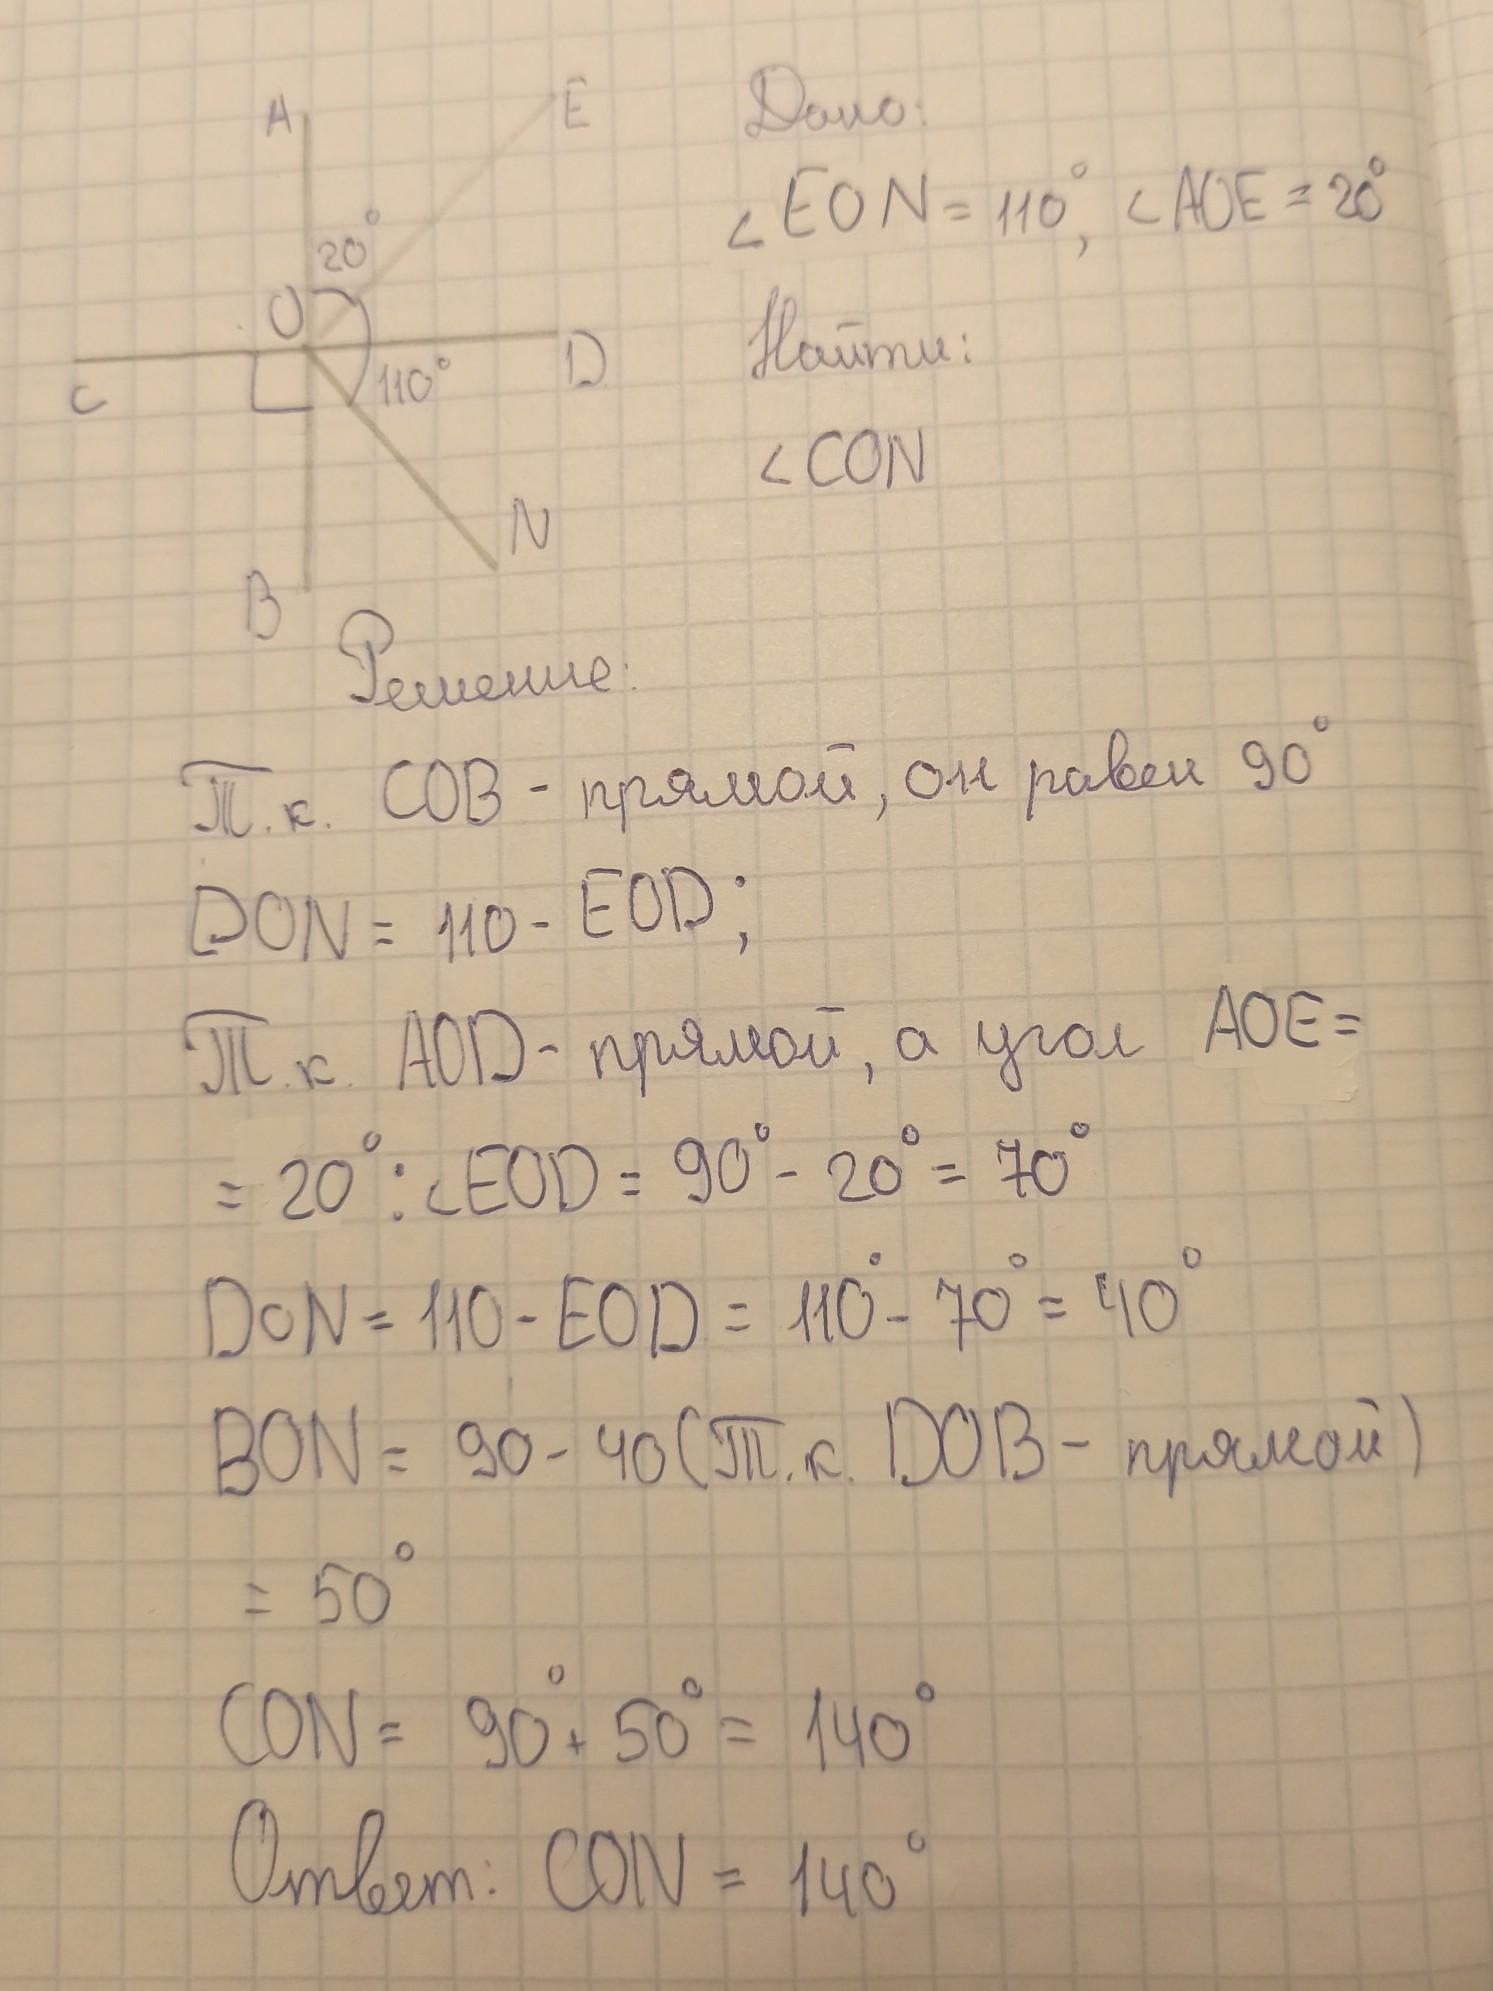 A
E
Дано:
∠EON = 110°, ∠AOE = 20°
20°
O
Найти:
D
C
110°
∠CON
N
B
Решение:
Т.к. COB - прямой, он равен 90°
DON = 110 - EOD;
Т.к. AOD - прямой, а угол AOE =
= 20°: ∠EOD = 90° - 20° = 70°
DON = 110 - EOD = 110° - 70° = 40°
BON = 90 - 40 (Т.к. DOB - прямой)
= 50°
CON = 90° + 50° = 140°
Ответ: CON = 140°